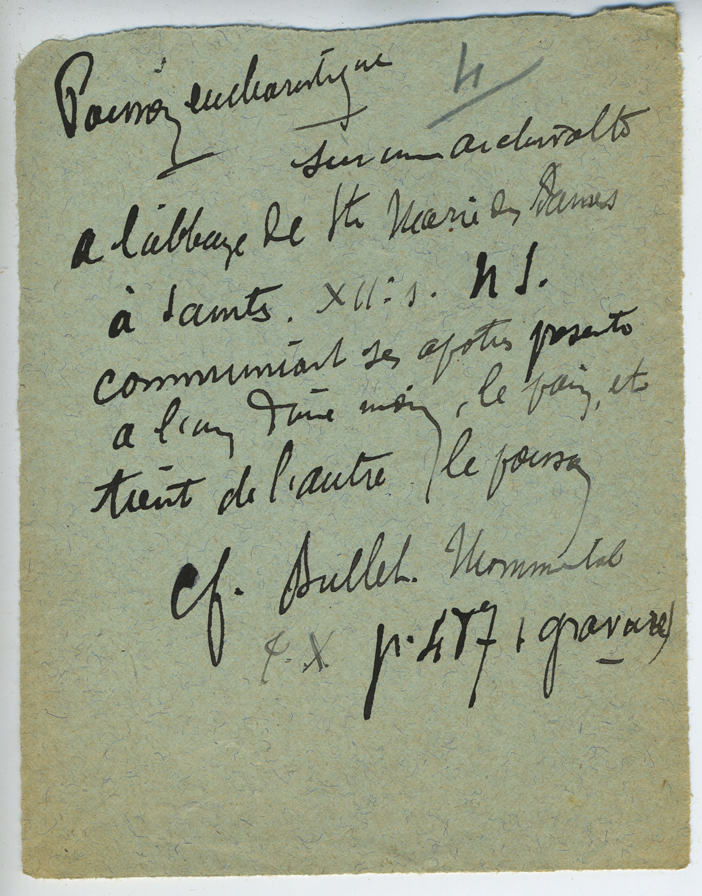 Poisson eucharistique 4
sur une archivolte
a l'abbaye de Ste Marie des Dames
à Saintes. XII: s. N S.
communiant ses apotres presente
a l'un d'une main, le pain, et
tient de l'autre le poisson
Cf. Bullet. Monumental
t. X p. 487 (gravure)